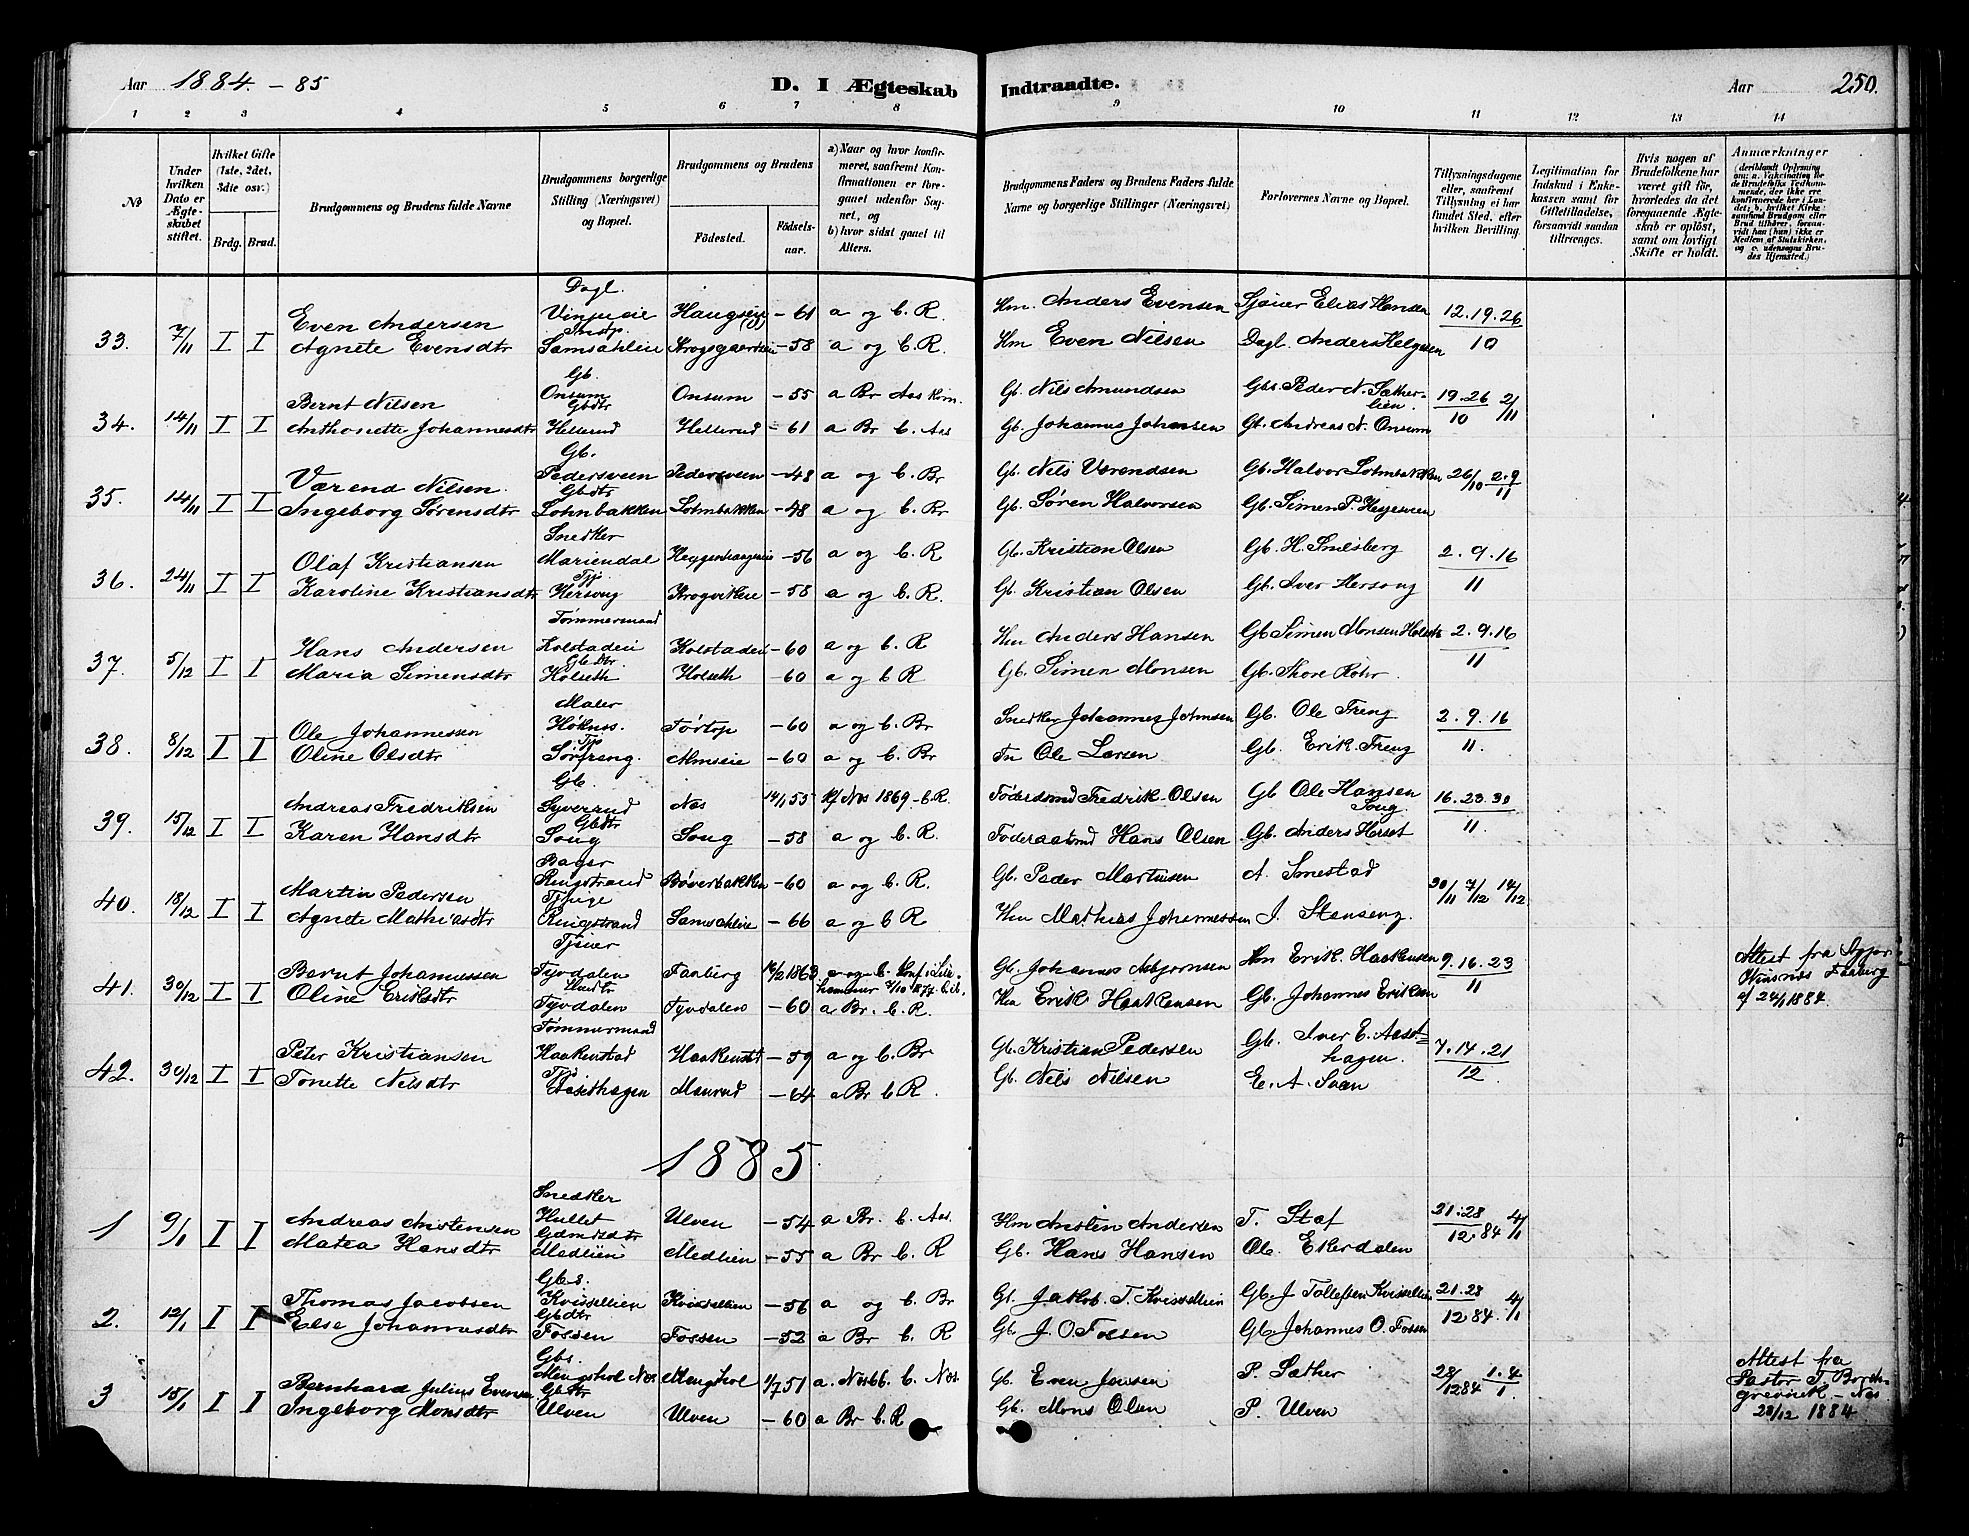 Aar 1884. - 85 D. I Ægteskab Indtraadte. Aar 250.
1 2 3 4 5 6 7 8 9 10 11 12 13 14
No
Under hvilken Dato er Ægteskabet stiftet.
Hvilket Gifte (1ste, 2det, 3die osv.)
Brdg. Brud.
Brudgommens og Brudens fulde Navne
Brudgommens borgerlige Stilling (Næringsvei) og Bopæl.
Brudgommens og Brudens
Fødested. Fødsels-aar.
a) Naar og hvor konfirmeret, saafremt Konfirmationen er foregaaet udenfor Sognet, og
b) hvor sidst gaaet til Alters.
Brudgommens Faders og Brudens Faders fulde Navne og borgerlige Stillinger (Næringsvei)
Forlovernes Navne og Bopæl.
Tillysningsdagene eller, saafremt Tillysning ei har fundet Sted, efter hvilken Bevilling.
Legitimation for Indskud i Enkekassen samt for Giftetilladelse, forsaavidt saadan tiltrænges.
Hvis nogen af Brudefolkene har været gift før, hvorledes da det foregaaende Ægteskab er opløst, samt om lovligt Skifte er holdt.
Anmærkninger
Dagl.
33. 7/11 I I Even Andersen Vinjueie Haugseie - 61 a og b. R. Hm. Anders Evensen Sjøier Elias Hansen 12.19.26
Agnete Evensdtr Samsahleie - 58 a og b. R. Hm Even Nilsen Dagl. Anders Helgesen 10
Gb.
34. 14/11 I I Bernt Nilsen Onsum Onsum - 55 a Br Aas kom. Gb. Nils Amundsen Gbs. Peder N. Sætherlien. 19.26 2/11
Gbdtr
Anthonette Johannesdtr Hellerud Hellerud - 61 a Br b. Aas Gb. Johannes Johansen Gb. Andreas N. Onsum 10
Gb.
35. 14/11 I I Værend Nilsen. Pedersveen Pedersveen - 48 a og b. Br Gb. Nils Værendsen Gb. Halvor Lohnbakken 26/10 2.9/11
Gbdtr
Ingeborg Sørensdtr Lohnbakken Lohnbakken - 48 a og b. Br Gb. Søren Halvorsen Gb. Simen P.
Snedker
36. 24/11 I I Olaf Kristiansen Mariendal - 56 a og b. R Gb. Kristian Olsen Gb. H. Smesberg 2.9.16
Tj.
Karoline Kristiansdtr Hersoug Krogvikeie - 58 a og b. R. Gb. Kristian Olsen Gb. Iver Hersoug 11
Tømmermand
37. 5/12 I I Hans Andersen Kolstadeie Kolstadeie - 60 a og b. R Hm Anders Hansen Gb Simen Monsen Holseth 2.9.16
Gb.dtr.
Maria Simensdtr Holseth Holseth - 60 a og b R Gb. Simen Monsen Gb. Thore Rohr. 11
Maler
38. 8/12 I I Ole Johannessen Høknes. Tørtop - 60 a og b. Br Snedker Johannes Johnsen Gb. Ole Freng 2.9.16
Tj.
Oline Olsdtr Sørfreng. Almseie - 60 a og b. Br In Ole Larsen Gb. Erik Freng 11.
Gb.
39. 15/12 I I Andreas Fredriksen Syverud Næs 14/1 55 Kf Næs 1869 - b. R. Føderaadsmd Fredrik Olsen Gb Ole Hansen Soug. 16.23.30
Gbdtr
Karen Hansdtr Soug Soug - 58 a og b. R Føderaadsmd Hans Olsen Gb. Anders Herset 11.
Bager
40. 18/12 I I Martin Pedersen Ringstrand Bøverbakken - 60 a og b. R. Gb. Peder Martinsen A. Smestad 30/11 7/12 14/12
Tjpige
Agnete Mathiasdtr Ringstrand Samsahleie - 66 a og b R Hm Mathias Johannessen J. Stenseng.
Tjener
41. 30/12 I I Bernt Johannessen Tyvdalen Faaberg 14/2 1863 Konf. i Lillehammer 7/10 1877. b. ib. Gb. Johannes Asbjørnsen Hm Erik Haakensen 9.16.23 Attest fra Sogpr. Faaberg af 24/1 1884.
Oline Eriksdtr Tyvdalen Tyvdalen - 60 a Br. b. R. Hm Erik Haakensen Gb. Johannes Eriksen 11
Tømmermand
42. 30/12 I I Peter Kristiansen Haakenstad Haakenstd - 59 a og b. Br Gb. Kristian Pedersen Gb. Iver E. Aasethagen. 7.14.21
Tj.
Tonette Nilsdtr Aasethagen Maurud - 64 a Br b R. Gb. Nils Nilsen E. A. Svæn 12.
1885.
Snedker
1 9/1 I I Andreas Anstensen Hullet Ulven - 54 a Br. b. Aas. Hm Ansten Andersen T. Staf 21.28 4/1
Gdmdsdtr
Matea Hansdtr Medlien Medlien - 55 a Br b. R Gb. Hans Hansen Ole Ekerdalen 12.84
Gbs.
2. 12/1 I I Thomas Jacobsen Kvissellien Kvissellien - 56 a og b. Br Gb. Jakob T. Kvissellien Gb. J Tollefsen Kvissellien 21.28 4/1
Gbdtr
Else Johannesdtr Fossen Fossen - 52 a Br b. R Gb. J. O. Fossen Gb. Johannes O. Fossen 12.84
Gbs.
3 15/1 I I Bernhard Julius Evensen Mengshol Næs Mengshol 1/7 51 a. Næs 66. b. Næs. Gb. Even Jensen P. Sæther 28/12 84 1.4/1 Attest fra Pastor T. Borchgrevink - Næs 28/12 1884
Gbdtr
Ingeborg Monsdtr Ulven Ulven - 60 a Br b. R Gb. Mons Olsen P. Ulven